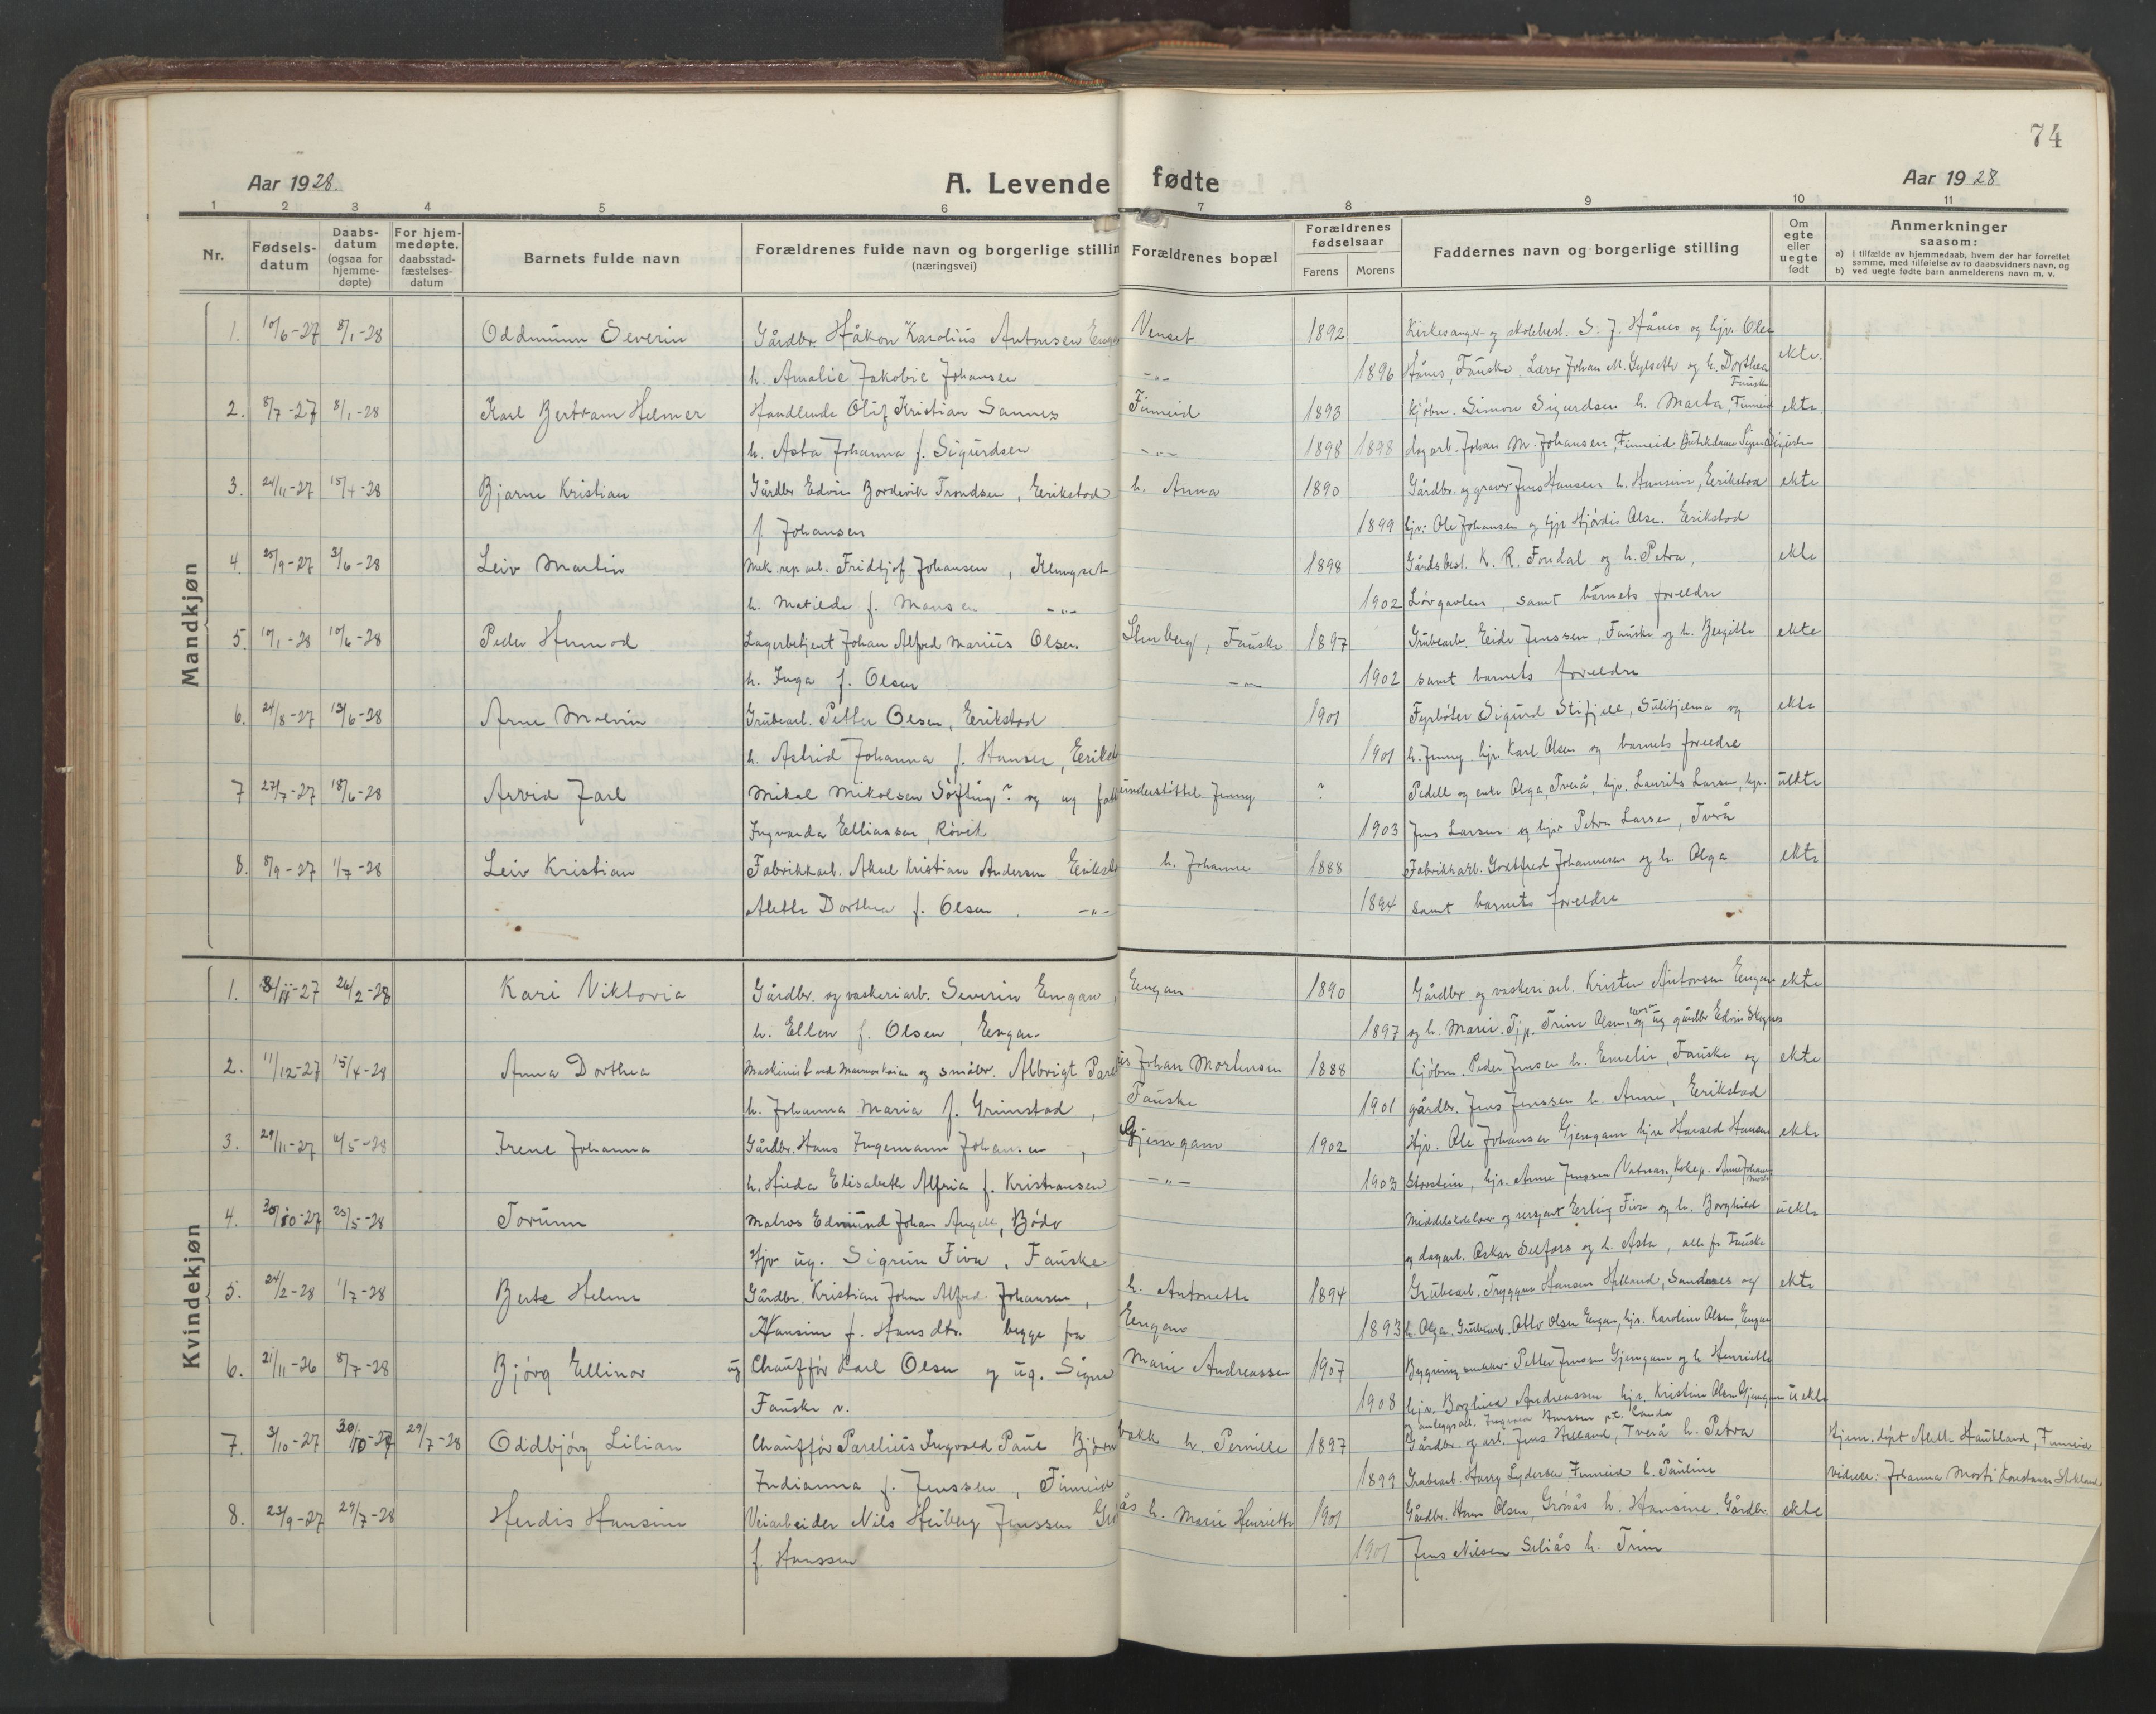 74
Aar 1928.
A. Levende fødte
Aar 1928
1 2 3 4 5 6 7 8 9 10 11
Nr.
Fødsels-datum
Daabs-datum (ogsaa for hjemme-døpte)
For hjem-medøpte, daabsstad-fæstelses-datum
Barnets fulde navn
Forældrenes fulde navn og borgerlige stillin
(næringsvei)
Forældrenes bopæl
Forældrenes fødselsaar
Farens
Morens
Faddernes navn og borgerlige stilling
Om egte eller uegte født
Anmerkninger
saasom:
a) i tilfælde av hjemmedaab, hvem der har forrettet samme, med tilføielse av to daabsvidners navn, og
b) ved uegte fødte barn anmelderens navn m. v.
Mandkjøn
1. 10/6-27 8/1-28 Oddmunn Severin Gårdbr. Håkon Karolius Antonsen Venset 1892 Kirkesanger og skolebest. S. J. Hånes og hjv. Olea
h. Amalie Jakobie Johansen -"- 1896 Hånes, Fauske. Lærer Johan M. Gylseth og h. Dorthea ekte.
Fauske
2. 8/7-27 8/1-28 Karl Bertram Helmer Handlende Oluf Kristian Sannes Finneid 1893 Kjøbm. Simon Sigurdsen h. Marta, Finneid ekte.
h. Asta Johanna f. Sigurdsen -"- 1898 1898 dagarb. Johan M. Johansen, Finneid Butikdame
3. 24/11-27 15/4-28 Bjarne Kristian Gårdbr. Edvin Bordevik Trondsen, Erikstad h. Anna 1890 Gårdbr. og graver Jens Hansen h. Hansine, Erikstad ekte
f. Johansen 1899 hjv. Ole Johansen og Hjørdis Olsen. Erikstad
4. 25/9-27 3/6-28 Leiv Martin Mek. rep. arb. Fridtjof Johansen, Klungset 1898 Gårdsbest. K. R. Fondal og h. Petra, ekte
h. Matilde f. Monsen -"- 1902 Løvgavlen, samt barnets foreldre
5. 10/1-28 10/6-28 Peder Hermod Lagerbetjent Johan Alfred Marius Olsen Stenberg, Fauske 1897 Grubearb. Jenssen, Fauske og h. Bergitte ekte
h. Inga f. Olsen -"- 1902 samt barnets foreldre
6. 24/8-27 13/6-28 Arne Malvin Grubearb. Petter Olsen, Erikstad 1901 Fyrbøter Sigurd Stifjell, Sulitjelma og ekte
h. Astrid Johanna f. Hansen, 1901 h. Jenny. hjv. Karl Olsen og barnets foreldre
7 27/7-27 18/6-28 Arvid Jarl Mikal Mikalsen Søfting? og ug understøttet Jenny ? Pedell og enke Olga, Tverå, hjv. Laurits Larsen, hjv. uekte
Ingvarda Elliassen, Røvik 1903 Jens Larsen og hjv Petra Larsen, Tverå
8. 8/9-27 1/7-28 Leiv Kristian Fabrikkarb. Aksel Kristian Andersen h. Johanne 1888 Fabrikkarb. Gottfred Johannesen og h. Olga ekte
Alette Dorthea f. Olsen. -"- 1894 samt barnets foreldre
Kvindekjøn
1. 8/11-27 26/2-28 Kari Viktoria Gårdbr. og vaskeriarb. Severin Engan, Engan 1890 Gårdbr og vaskeriarb. Kristen Antonsen Engan ekte
h. Ellen f. Olsen, Engan 1897 og h. Marie. Tjp. Trine Olsen, og ug gårdbr Edvin
2. 11/12-27 15/4-28 Anna Dorthea Maskinist ved og småbr. Albrigt Johan Mortensen 1888 Kjøbm. Peder Jensen h. Emelie, Fauske og ekte
h. Johanna Maria f. Grimstad, Fauske 1901 gårdbr. Jens Jenssen h. Anne, Erikstad
3. 29/11-27 6/5-28 Irene Johanna Gårdbr. Hans Ingemann Johansen, Gjemgam 1902 Hjv. Ole Johansen Gjemgam hjv. Harald Hansen ekte
h. Hilda Elisabeth Alfria f. Kristiansen -"- 1903 Storstein, hjv. Anne Jenssen
4. 20/10-27 25/5-28 Torunn Matros Edmund Johan Angell, Bodø Middelskolelærer og Erling Fiva og h. Borghild uekte
Hjv ug. Sigrun Fiva, Fauske og dagarb. Oskar Selfors og h. Asta, alle fr Fauske
5. 24/2-28 1/7-28 Berte Helene Gårdbr. Kristian Johan Alfred Johansen, h. Antonette 1894 Grubearb. Tryggve Hansen Helland, Sandnes og ekte
Hansine f. Hansdtr. begge fra Engan 1893 h. Olga. Grubearb. Otto Olsen Engan, hjv. Karoline Olsen, Engan
6. 21/11-26 8/7-28 Bjørg Ellinor ug Chauffør Karl Olsen og ug. Signe Marie Andreassen 1907 Petter Jenssen Gjemgam og h. Henriette
Fauske v. 1908 hjv. Borghild Andreassen hjv. Kristine Olsen uekte
7. 3/10-27 30/10-27 29/7-28 Oddbjørg Lilian Chauffør Parelius Ingvald Paul Bjørnbakk h. Pernille 1897 Gårdbr. og arb. Jens Helland, Tverå h. Petra Hjem. døpt Alette Haukland, Finneid
Indianna f. Jenssen, Finneid 1899 Grubearb. Harry Lydersen Finneid h. Pauline vidner: Johanna
8. 23/9-27 29/7-28 Herdis Hansine Veiarbeider Nils Heiberg Jenssen h. Marie Henriette 1901 Gårdbr. Hans Olsen, Grønås h. Hansine. Gårdbr. ekte
f. Hanssen 1901 Jens Nilsen Seliås h. Trine